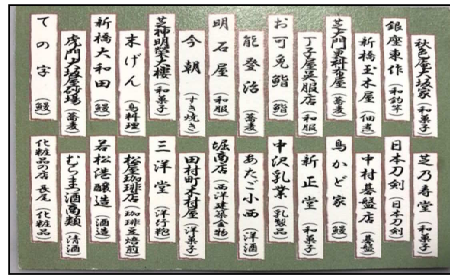 秋色庵大坂家（和菓子）
銀座東作（和釣竿）
新橋玉木屋（佃煮）
芝大門更科布屋（蕎麦）
丁子屋呉服店（和服）
お可免鮨（鮨）
能登治（蕎麦）
明石屋（和服）
今朝（すき焼き）
芝神明榮太樓（和菓子）
末げん（鳥料理）
新橋大和田（鰻）
虎ノ門大坂屋砂場（蕎麦）
ての字（鰻）
（和菓子）
日本刀剣（日本刀剣）
中村碁盤店（碁盤）
鳥かど家（鰻）
新正堂（和菓子）
中沢乳業（乳製品）
あたご小西（洋酒）
堀商店（西洋建築金物）
田村町木村屋（洋菓子）
三洋堂（洋行鞄）
松屋珈琲店（珈琲豆焙煎）
若松港醸造（酒造）
（清酒）
化粧品の店 長尾（化粧品）